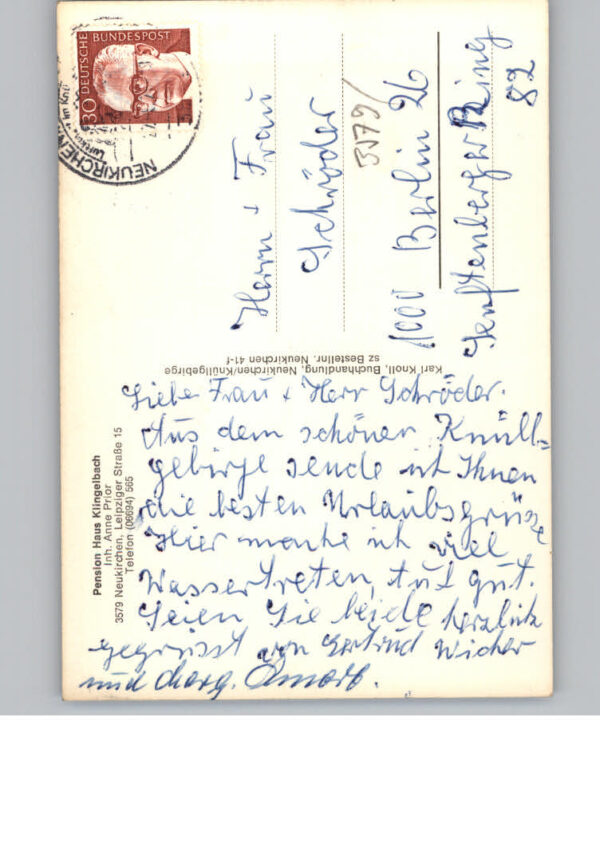 Pension Haus Klingelbach
Inh. Anne Prior
3579 Neukirchen, Leipziger Straße 15
Telefon (06694) 565
Karl Knoll, Buchhandlung, Neukirchen/Knüllgebirge
sz Bestellnr. Neukirchen 41-f
DEUTSCHE BUNDESPOST
30
NEUKIRCHEN
Liebe Frau + Herr Schröder.
Aus dem schönen Knüll-
gebirge sende ich Ihnen
die besten Urlaubsgrüsse
Hier mache ich viel
Wassertreten, tut gut.
Seien Sie beide herzlich
gegrüsst von Gertrud Wicher
und Marg.
Herrn + Frau
Schröder
3579/
1000 Berlin 26
Senftenberger Ring
82